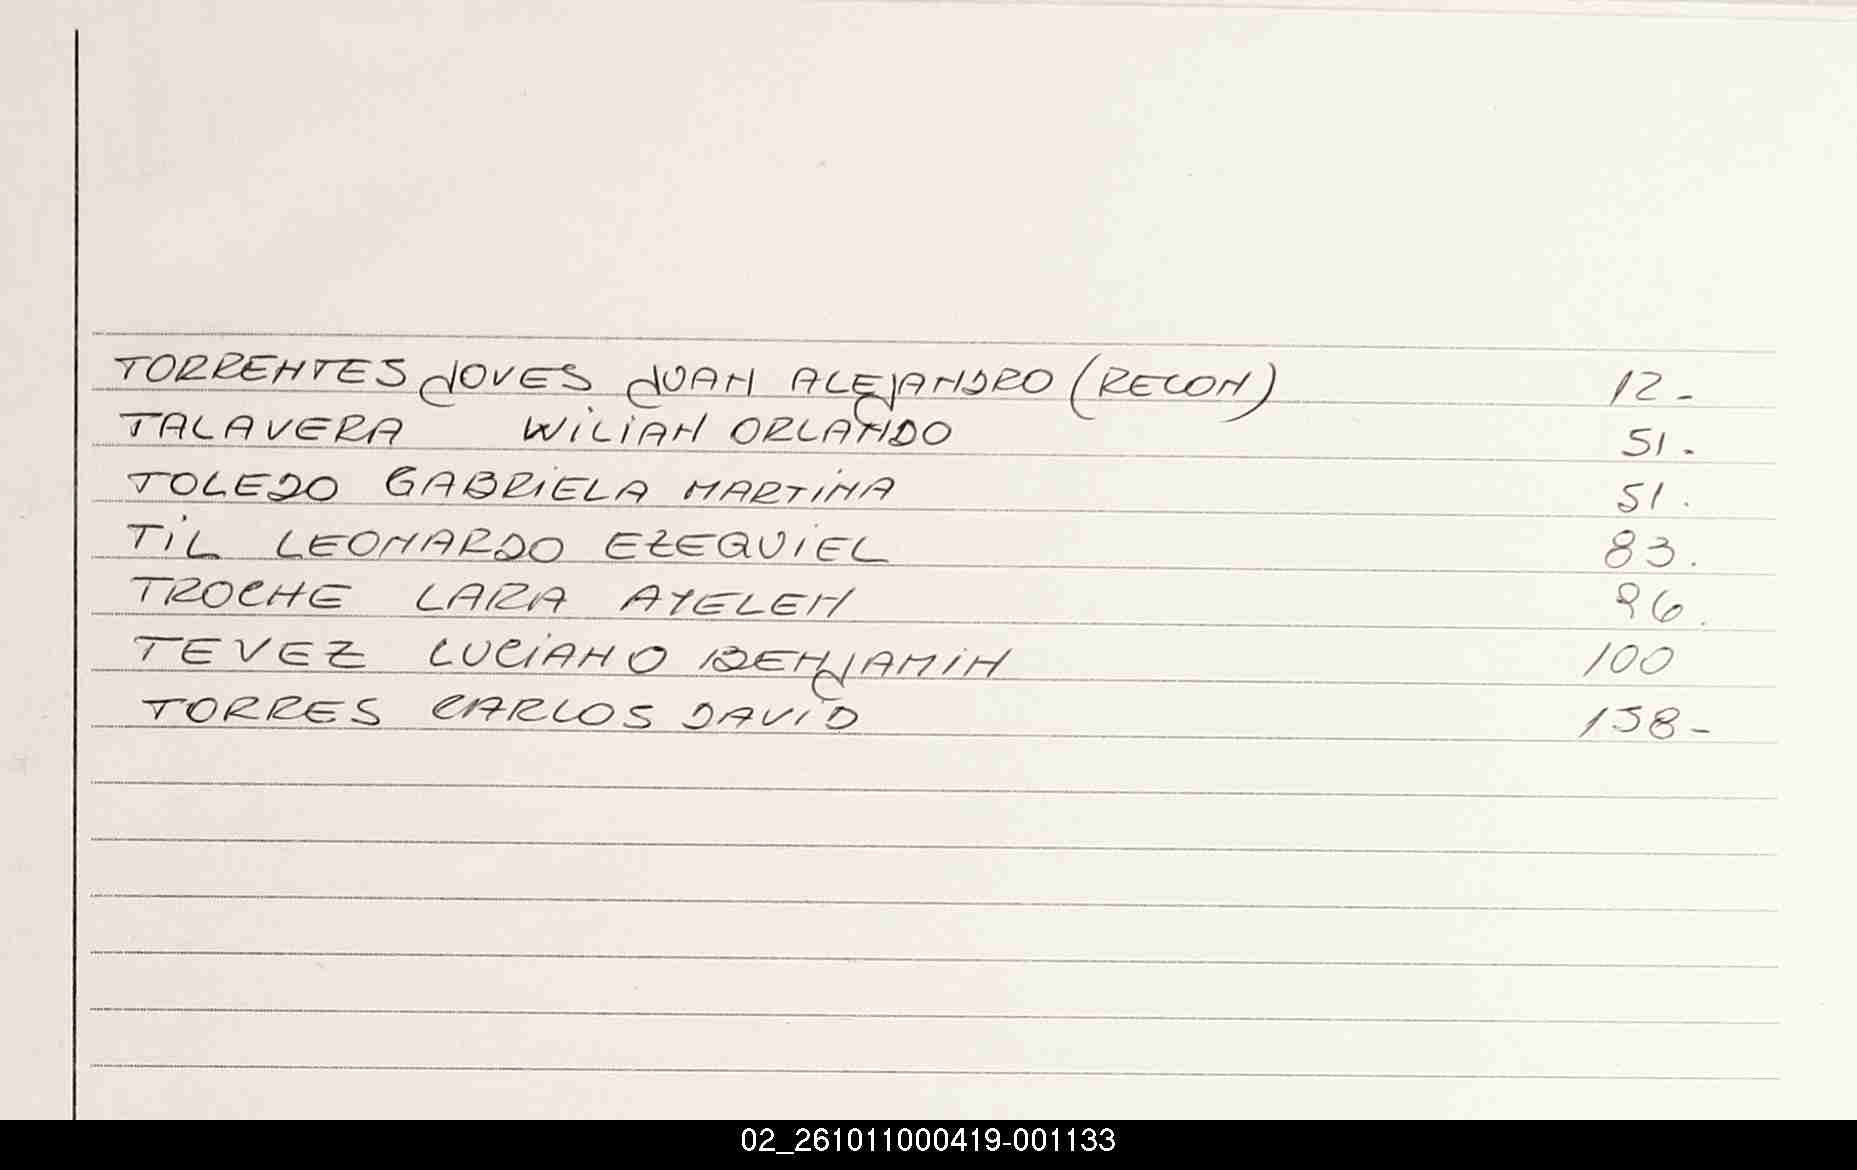 TORRENTES JOVES JUAN ALEJANDRO (RECON) 12-
TALAVERA WILIAN ORLANDO 51.
TOLEDO GABRIELA MARTINA 51.
TIL LEONARDO EZEQUIEL 83.
TROCHE LARA AYELEN 96.
TEVEZ LUCIANO BENJAMIN 100
TORRES CARLOS DAVID 158-
02_261011000419-001133